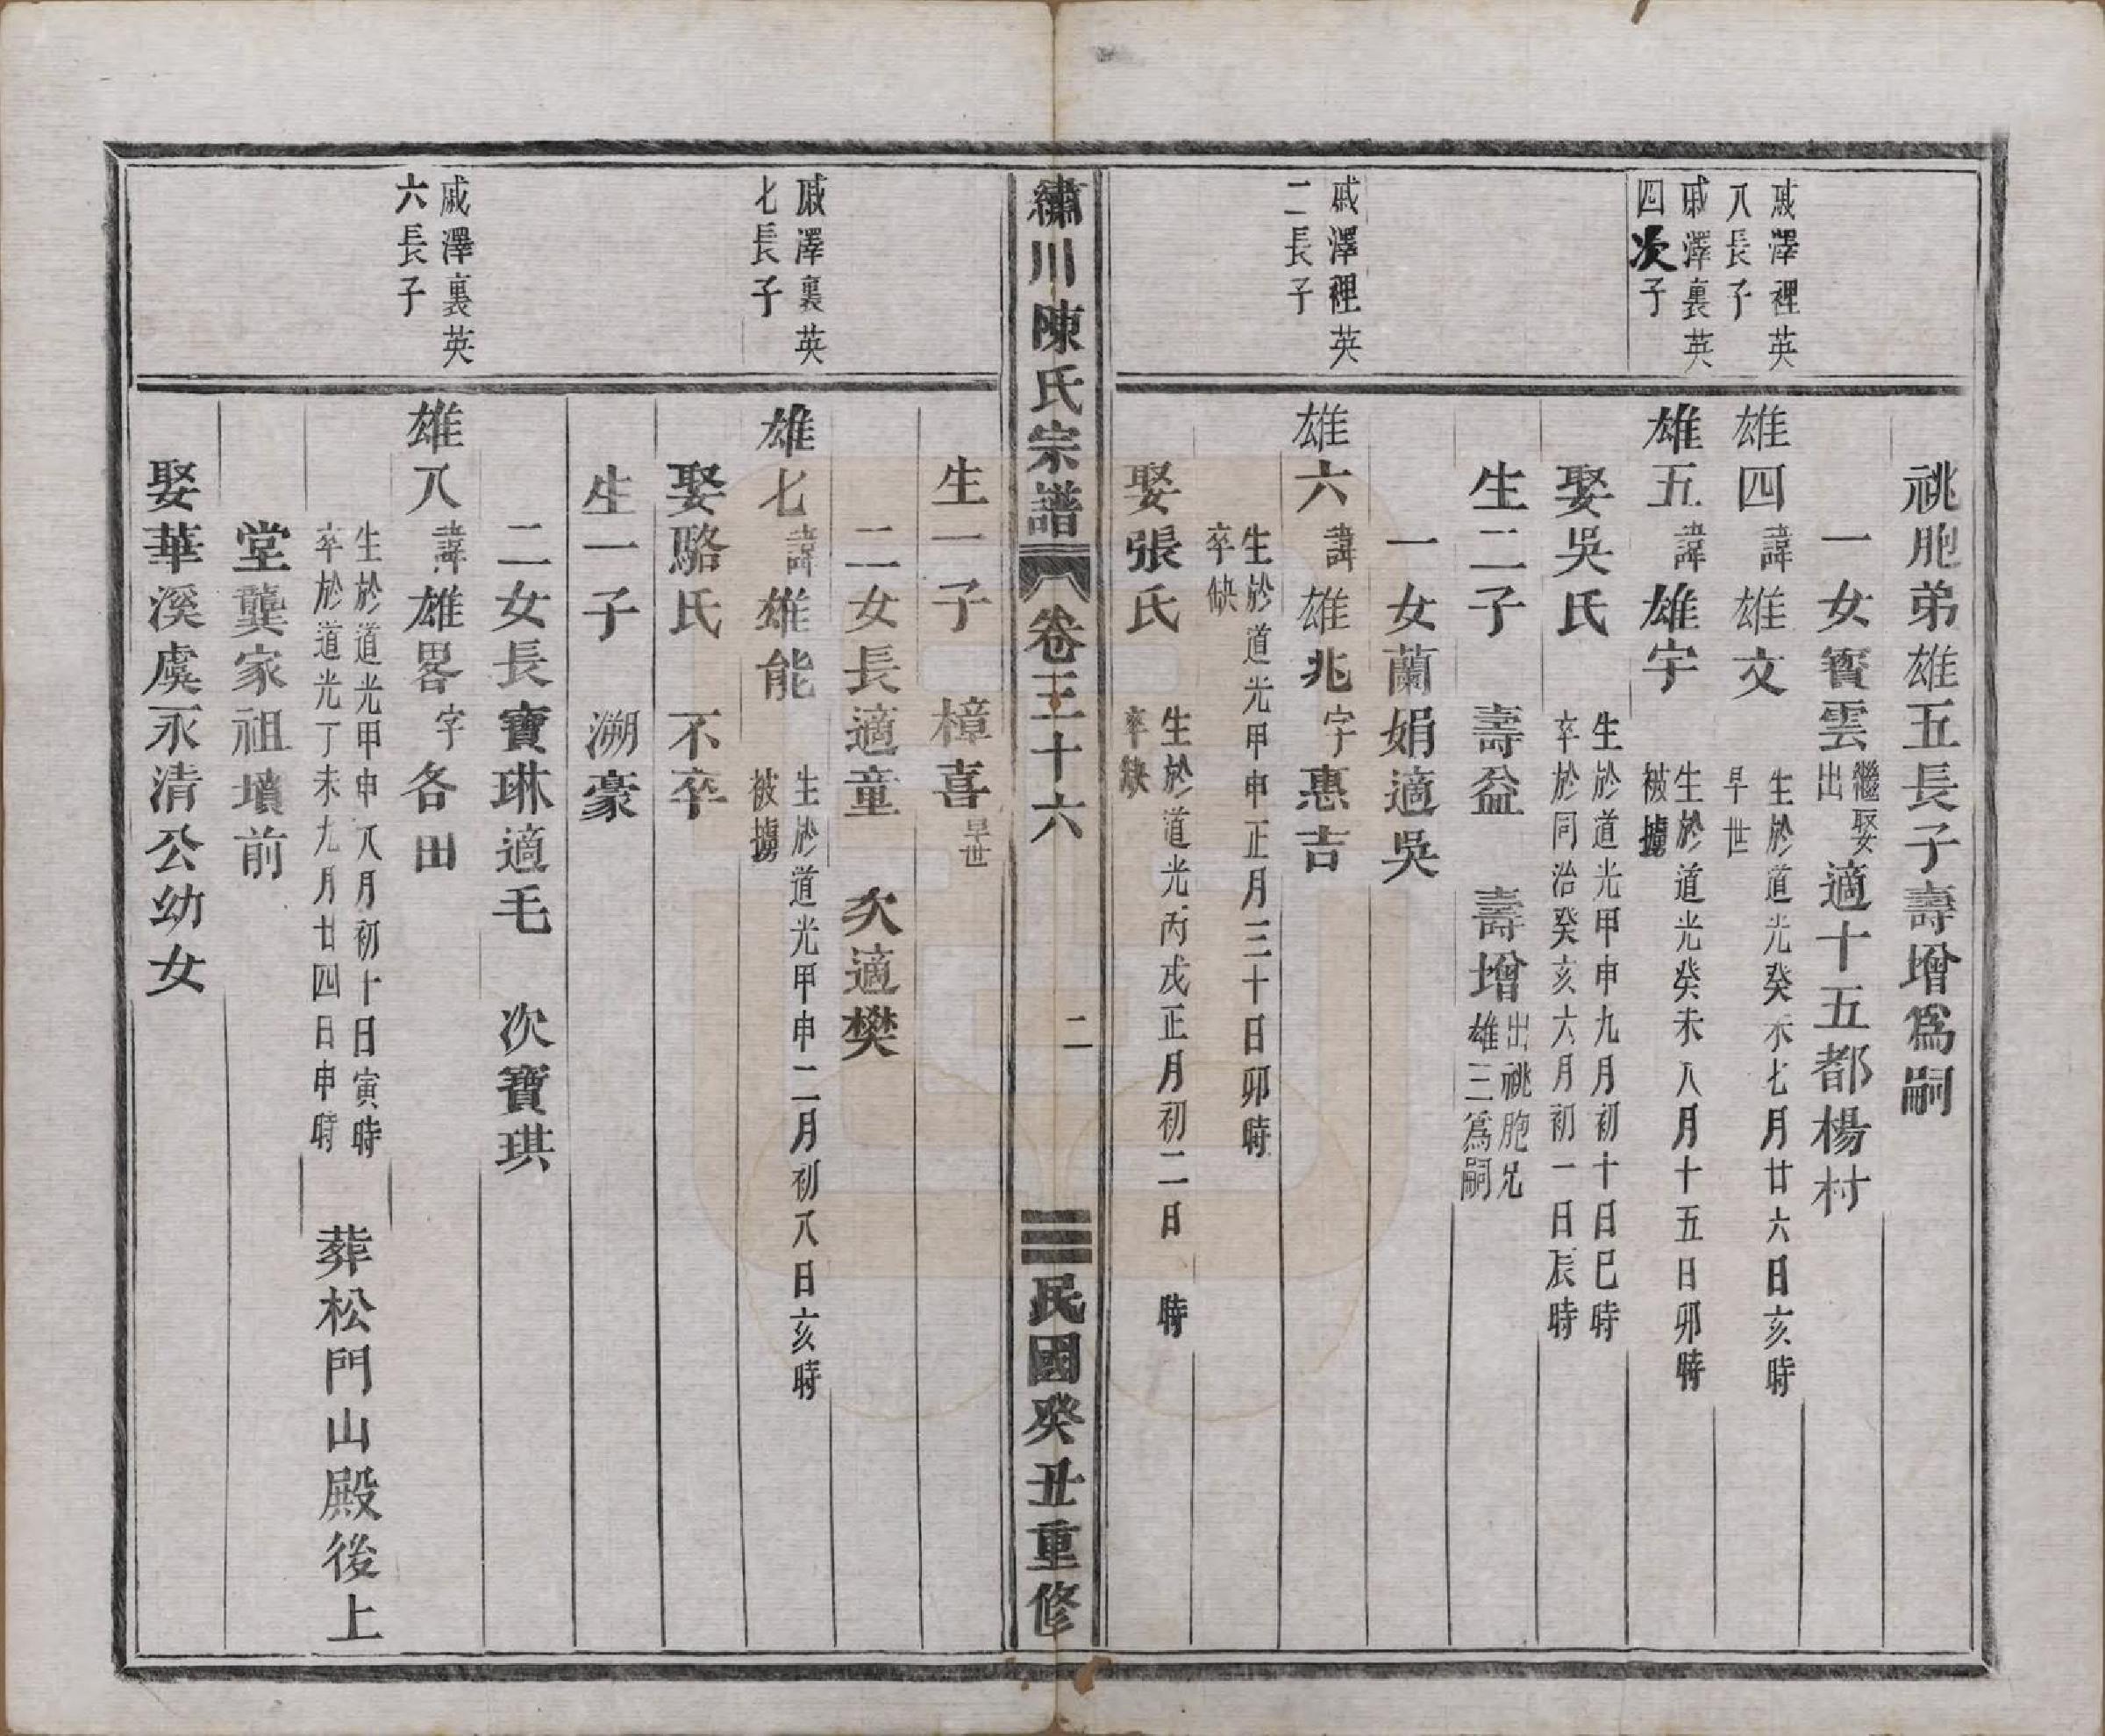 祧胞弟雄五長子壽增爲嗣
一女寳雲繼娶出適十五都楊村
戚澤裡英八長子
雄四諱雄文生於道光癸未七月廿六日亥時早世
戚澤裏英四次子
雄五諱雄宇生於道光癸未八月十五日卯時被擄
娶吳氏生於道光甲申九月初十日巳時卒於同治癸亥六月初一日辰時
生二子 壽益 壽增出祧胞兄雄三爲嗣
一女蘭娟適吳
戚澤裡英二長子
雄六諱雄兆字惠吉
生於道光甲申正月三十日卯時卒缺
娶張氏生於道光丙戌正月初二日 時卒缺
繡川陳氏宗譜 卷三十六 二 民國癸丑重修
生一子 樟喜早世
二女長適童 次適樊
戚澤裏英七長子
雄七諱雄能生於道光甲申二月初八日亥時被擄
娶駱氏 不卒
生一子 溯豪
二女長寶琳適毛 次寶琪
戚澤裏英六長子
雄八諱雄畧字各田
生於道光甲申八月初十日寅時卒於道光丁未九月廿四日申時 葬松門山殿後上
堂龔家祖墳前
娶華溪虞永清公幼女